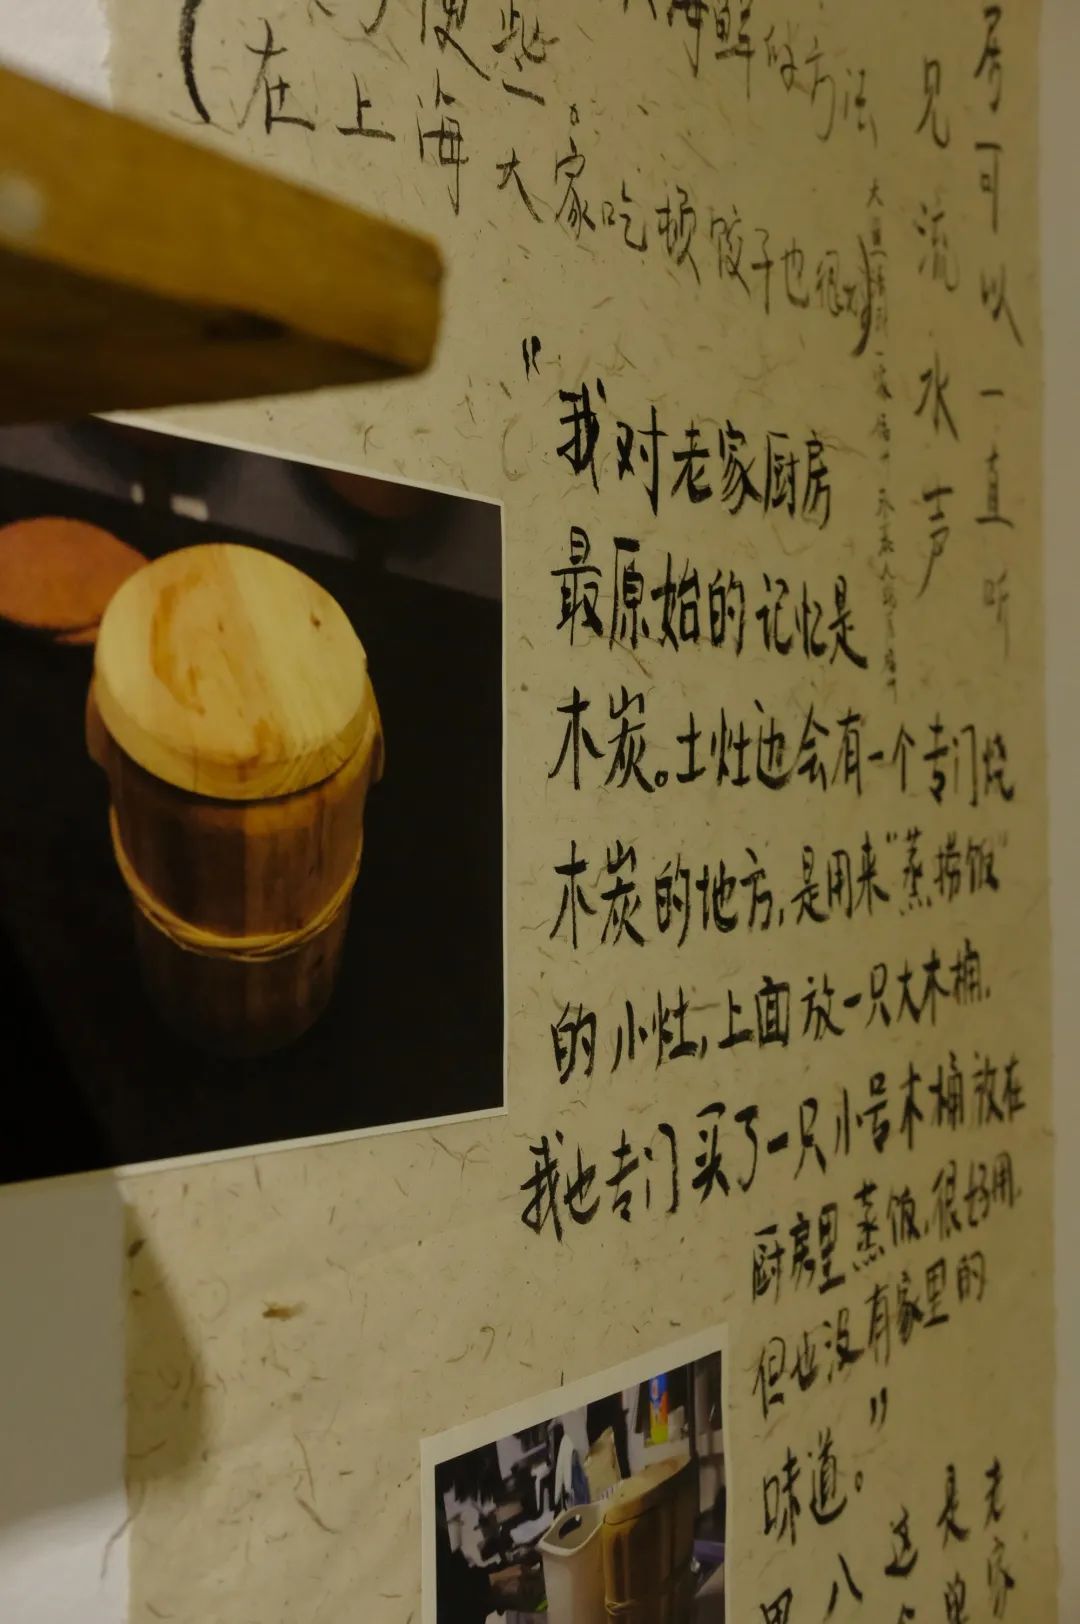 便些。
海鲜的方法
(在上海大家吃顿饺子也很
居可以一直听
见流水声
"我对老家厨房
最原始的记忆是
木炭。土灶边会有一个专门烧
木炭的地方,是用来"蒸捞饭"
的小灶,上面放一只大木桶.
我也专门买了一只小号木桶放在
厨房里蒸饭.很好用.
但也没有家里的
味道。"
老家
是
这
八